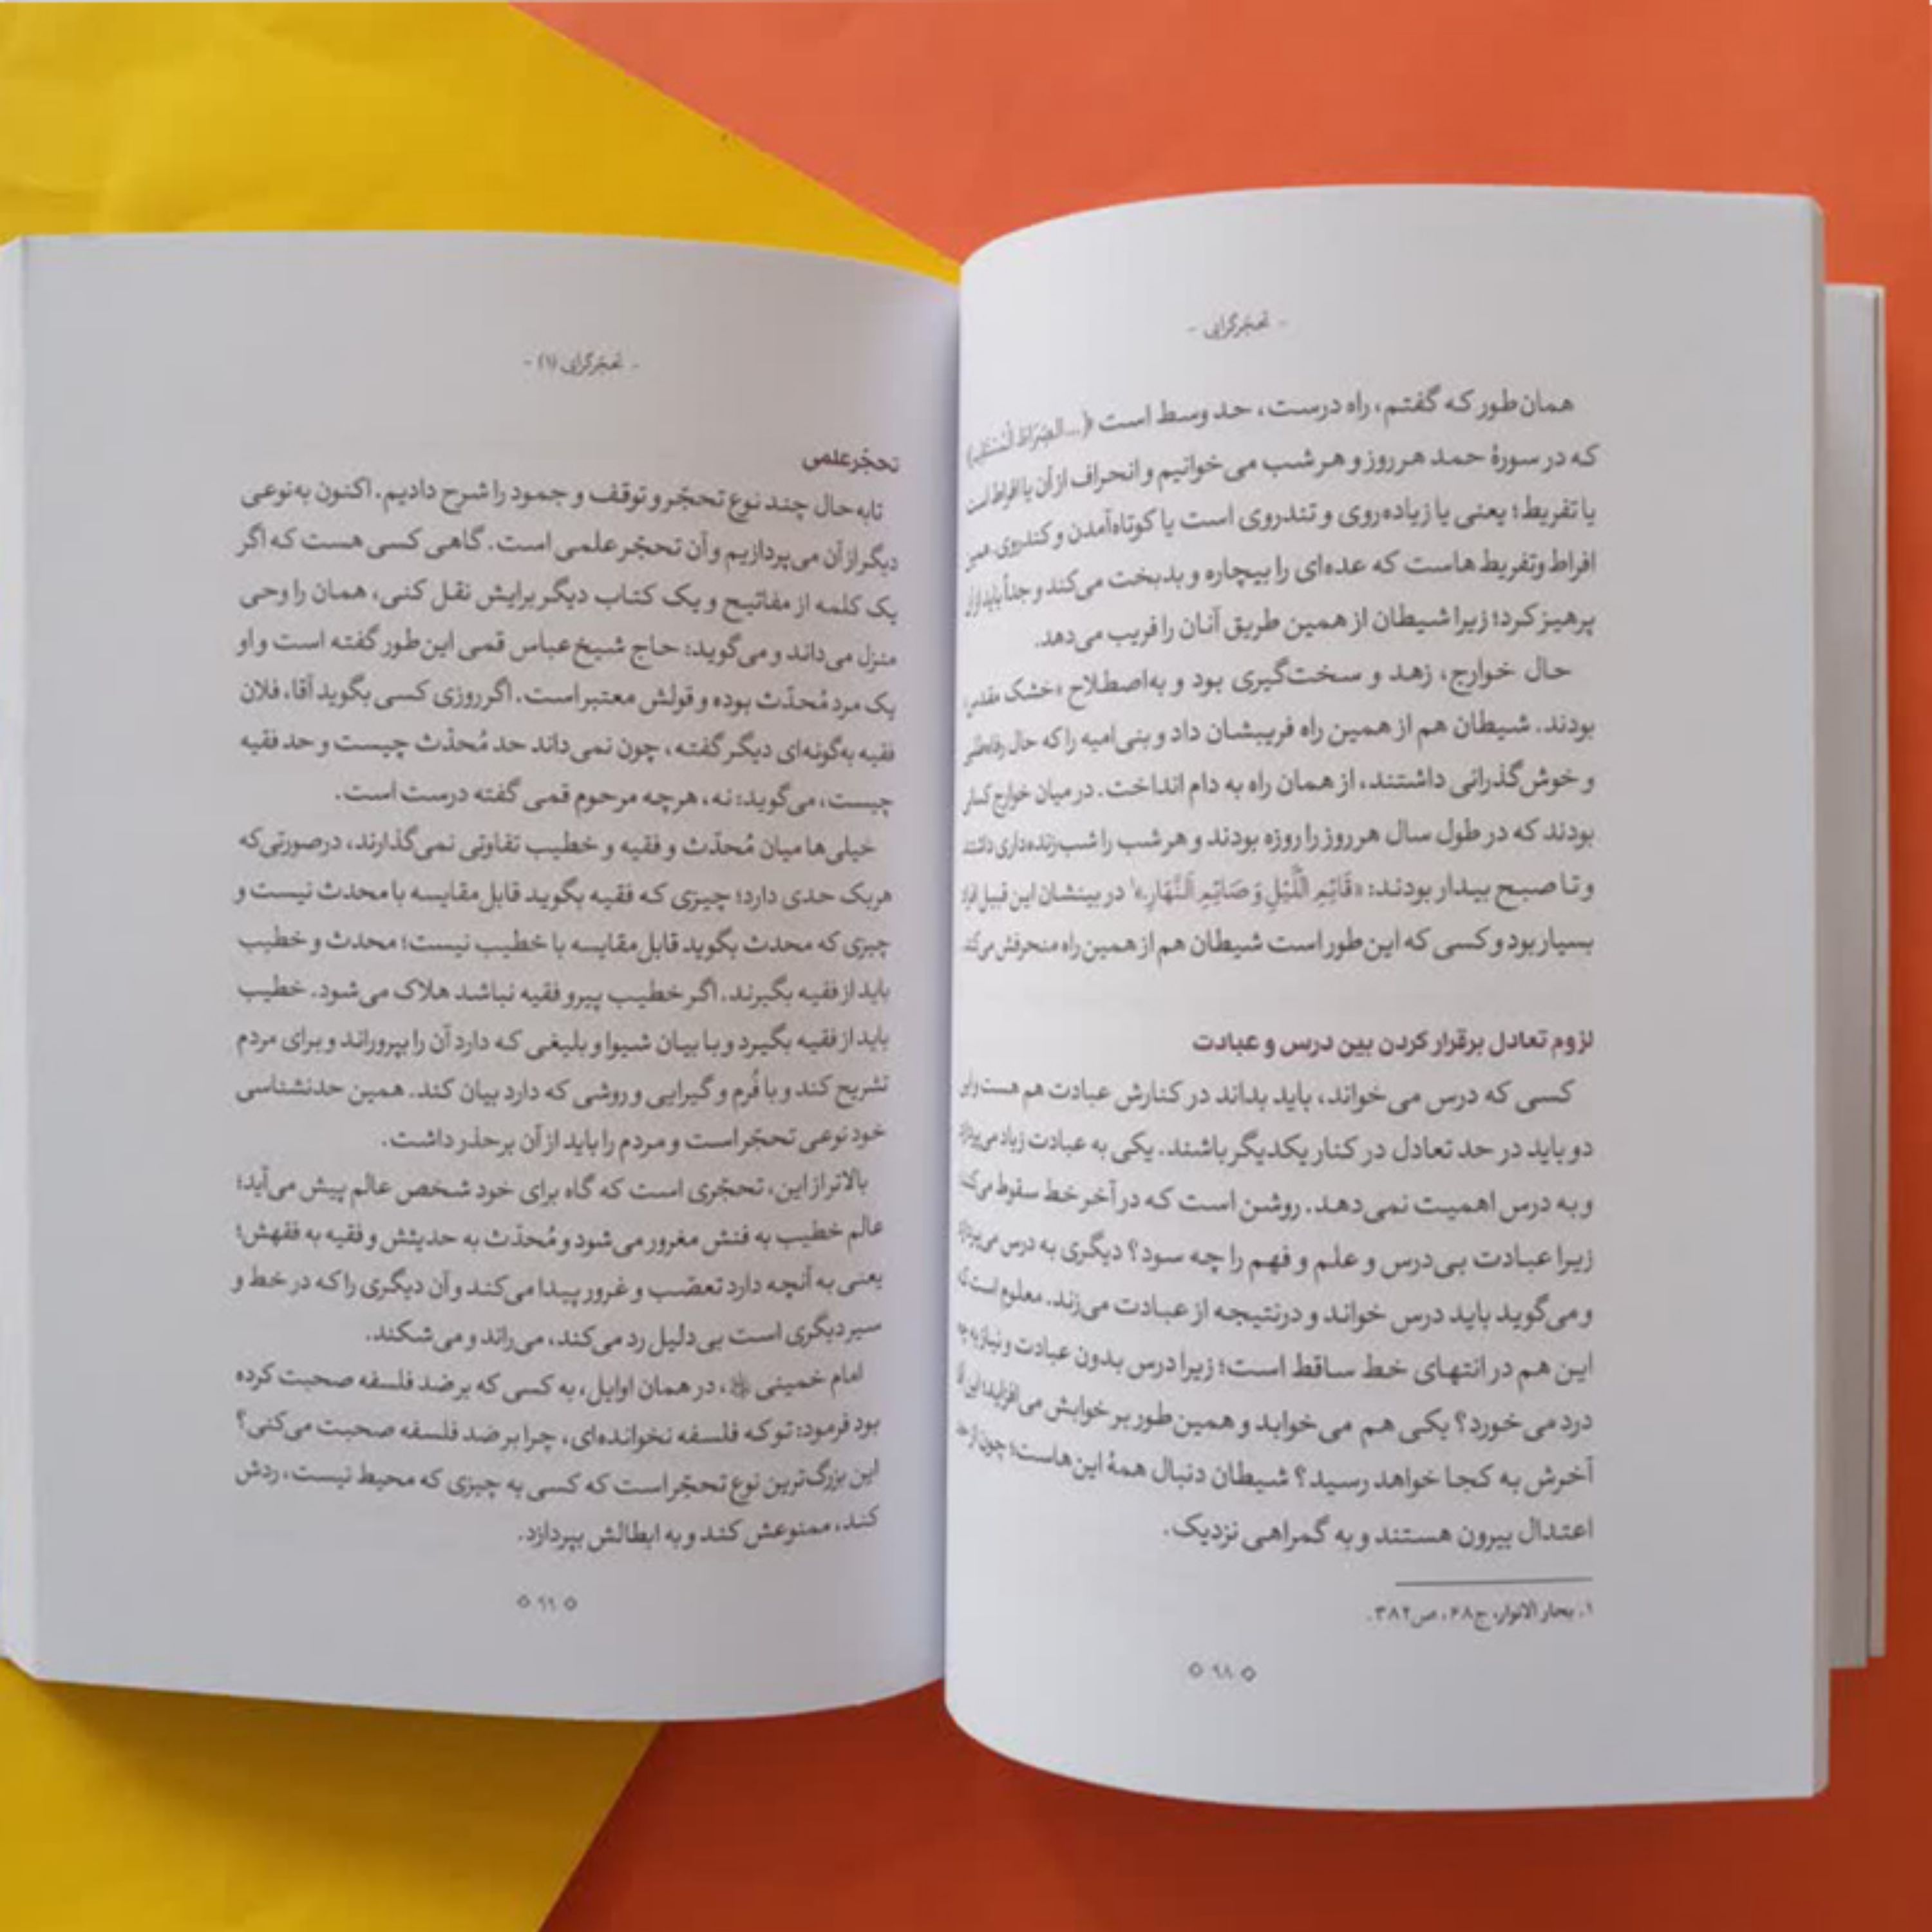 - تحجّرگرایی -
همان‌طور که گفتم، راه درست، حد وسط است ﴿...الصِّرَاطَ الْمُسْتَقِيمَ﴾
که در سورهٔ حمد هر روز و هر شب می‌خوانیم و انحراف از آن یا افراط است
یا تفریط؛ یعنی یا زیاده‌روی و تندروی است یا کوتاه‌آمدن و کندروی. همین
افراط وتفریط‌هاست که عده‌ای را بیچاره و بدبخت می‌کند و جداً باید از آن
پرهیز کرد؛ زیرا شیطان از همین طریق آنان را فریب می‌دهد.
حال خوارج، زهد و سخت‌گیری بود و به‌اصطلاح «خشک مقدس»
بودند. شیطان هم از همین راه فریبشان داد و بنی‌امیه را که حال رفاه‌طلبی
و خوش‌گذرانی داشتند، از همان راه به دام انداخت. در میان خوارج کسانی
بودند که در طول سال هر روز را روزه بودند و هر شب را شب‌زنده‌داری داشتند
و تا صبح بیدار بودند: «قَائِمِ اللَّيْلِ وَ صَائِمِ النَّهَارِ»۱ در بینشان این قبیل افراد
بسیار بود و کسی که این‌طور است شیطان هم از همین راه منحرفش می‌کند.
لزوم تعادل برقرار کردن بین درس و عبادت
کسی که درس می‌خواند، باید بداند در کنارش عبادت هم هست و این
دو باید در حد تعادل در کنار یکدیگر باشند. یکی به عبادت زیاد می‌پردازد
و به درس اهمیت نمی‌دهد. روشن است که در آخر خط سقوط می‌کند؛
زیرا عبادت بی‌درس و علم و فهم را چه سود؟ دیگری به درس می‌پردازد
و می‌گوید باید درس خواند و درنتیجه از عبادت می‌زند. معلوم است که
این هم در انتهای خط ساقط است؛ زیرا درس بدون عبادت و نیاز به چه
درد می‌خورد؟ یکی هم می‌خوابد و همین‌طور بر خوابش می‌افزاید؛ این
آخرش به کجا خواهد رسید؟ شیطان دنبال همهٔ این‌هاست؛ چون از حد
اعتدال بیرون هستند و به گمراهی نزدیک.
۱. بحار الانوار، ج۶۸، ص۳۸۲.
◇ ۹۸ ◇
- تحجّرگرایی (۱) -
تحجّر علمی
تابه‌حال چند نوع تحجّر و توقف و جمود را شرح دادیم. اکنون به‌نوعی
دیگر از آن می‌پردازیم و آن تحجّر علمی است. گاهی کسی هست که اگر
یک کلمه از مفاتیح و یک کتاب دیگر برایش نقل کنی، همان را وحی
منزل می‌داند و می‌گوید: حاج شیخ‌عباس قمی این‌طور گفته است و او
یک مرد مُحدّث بوده و قولش معتبر است. اگر روزی کسی بگوید آقا، فلان
فقیه به‌گونه‌ای دیگر گفته، چون نمی‌داند حد مُحدّث چیست و حد فقیه
چیست، می‌گوید: نه، هرچه مرحوم قمی گفته درست است.
خیلی‌ها میان مُحدّث و فقیه و خطیب تفاوتی نمی‌گذارند، درصورتی‌که
هریک حدی دارد؛ چیزی که فقیه بگوید قابل‌مقایسه با محدث نیست و
چیزی که محدث بگوید قابل‌مقایسه با خطیب نیست؛ محدث و خطیب
باید از فقیه بگیرند. اگر خطیب پیرو فقیه نباشد هلاک می‌شود. خطیب
باید از فقیه بگیرد و با بیان شیوا و بلیغی که دارد آن را بپروراند و برای مردم
تشریح کند و با فُرم و گیرایی و روشی که دارد بیان کند. همین حدنشناسی
خود نوعی تحجّر است و مردم را باید از آن برحذر داشت.
بالاتر از این، تحجّری است که گاه برای خود شخص عالم پیش می‌آید؛
عالم خطیب به فنش مغرور می‌شود و مُحدّث به حدیثش و فقیه به فقهش؛
یعنی به آنچه دارد تعصّب و غرور پیدا می‌کند و آن دیگری را که در خط و
سیر دیگری است بی‌دلیل رد می‌کند، می‌راند و می‌شکند.
امام خمینی، در همان اوایل، به کسی که بر ضد فلسفه صحبت کرده
بود فرمود: تو که فلسفه نخوانده‌ای، چرا بر ضد فلسفه صحبت می‌کنی؟
این بزرگ‌ترین نوع تحجّر است که کسی به چیزی که محیط نیست، ردش
کند، ممنوعش کند و به ابطالش بپردازد.
◇ ۹۹ ◇